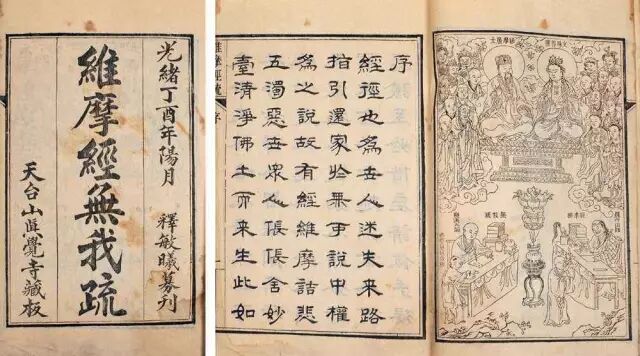 光緒丁酉年陽月 釋敏曦募刊
維摩經無我疏
天台山眞覺寺藏板
序
經徑也為世人迷失來路
指引還家於無事說中權
為之說故有經維摩詰悲
五濁惡世衆人倀倀舍妙
臺清淨佛土而來生此如